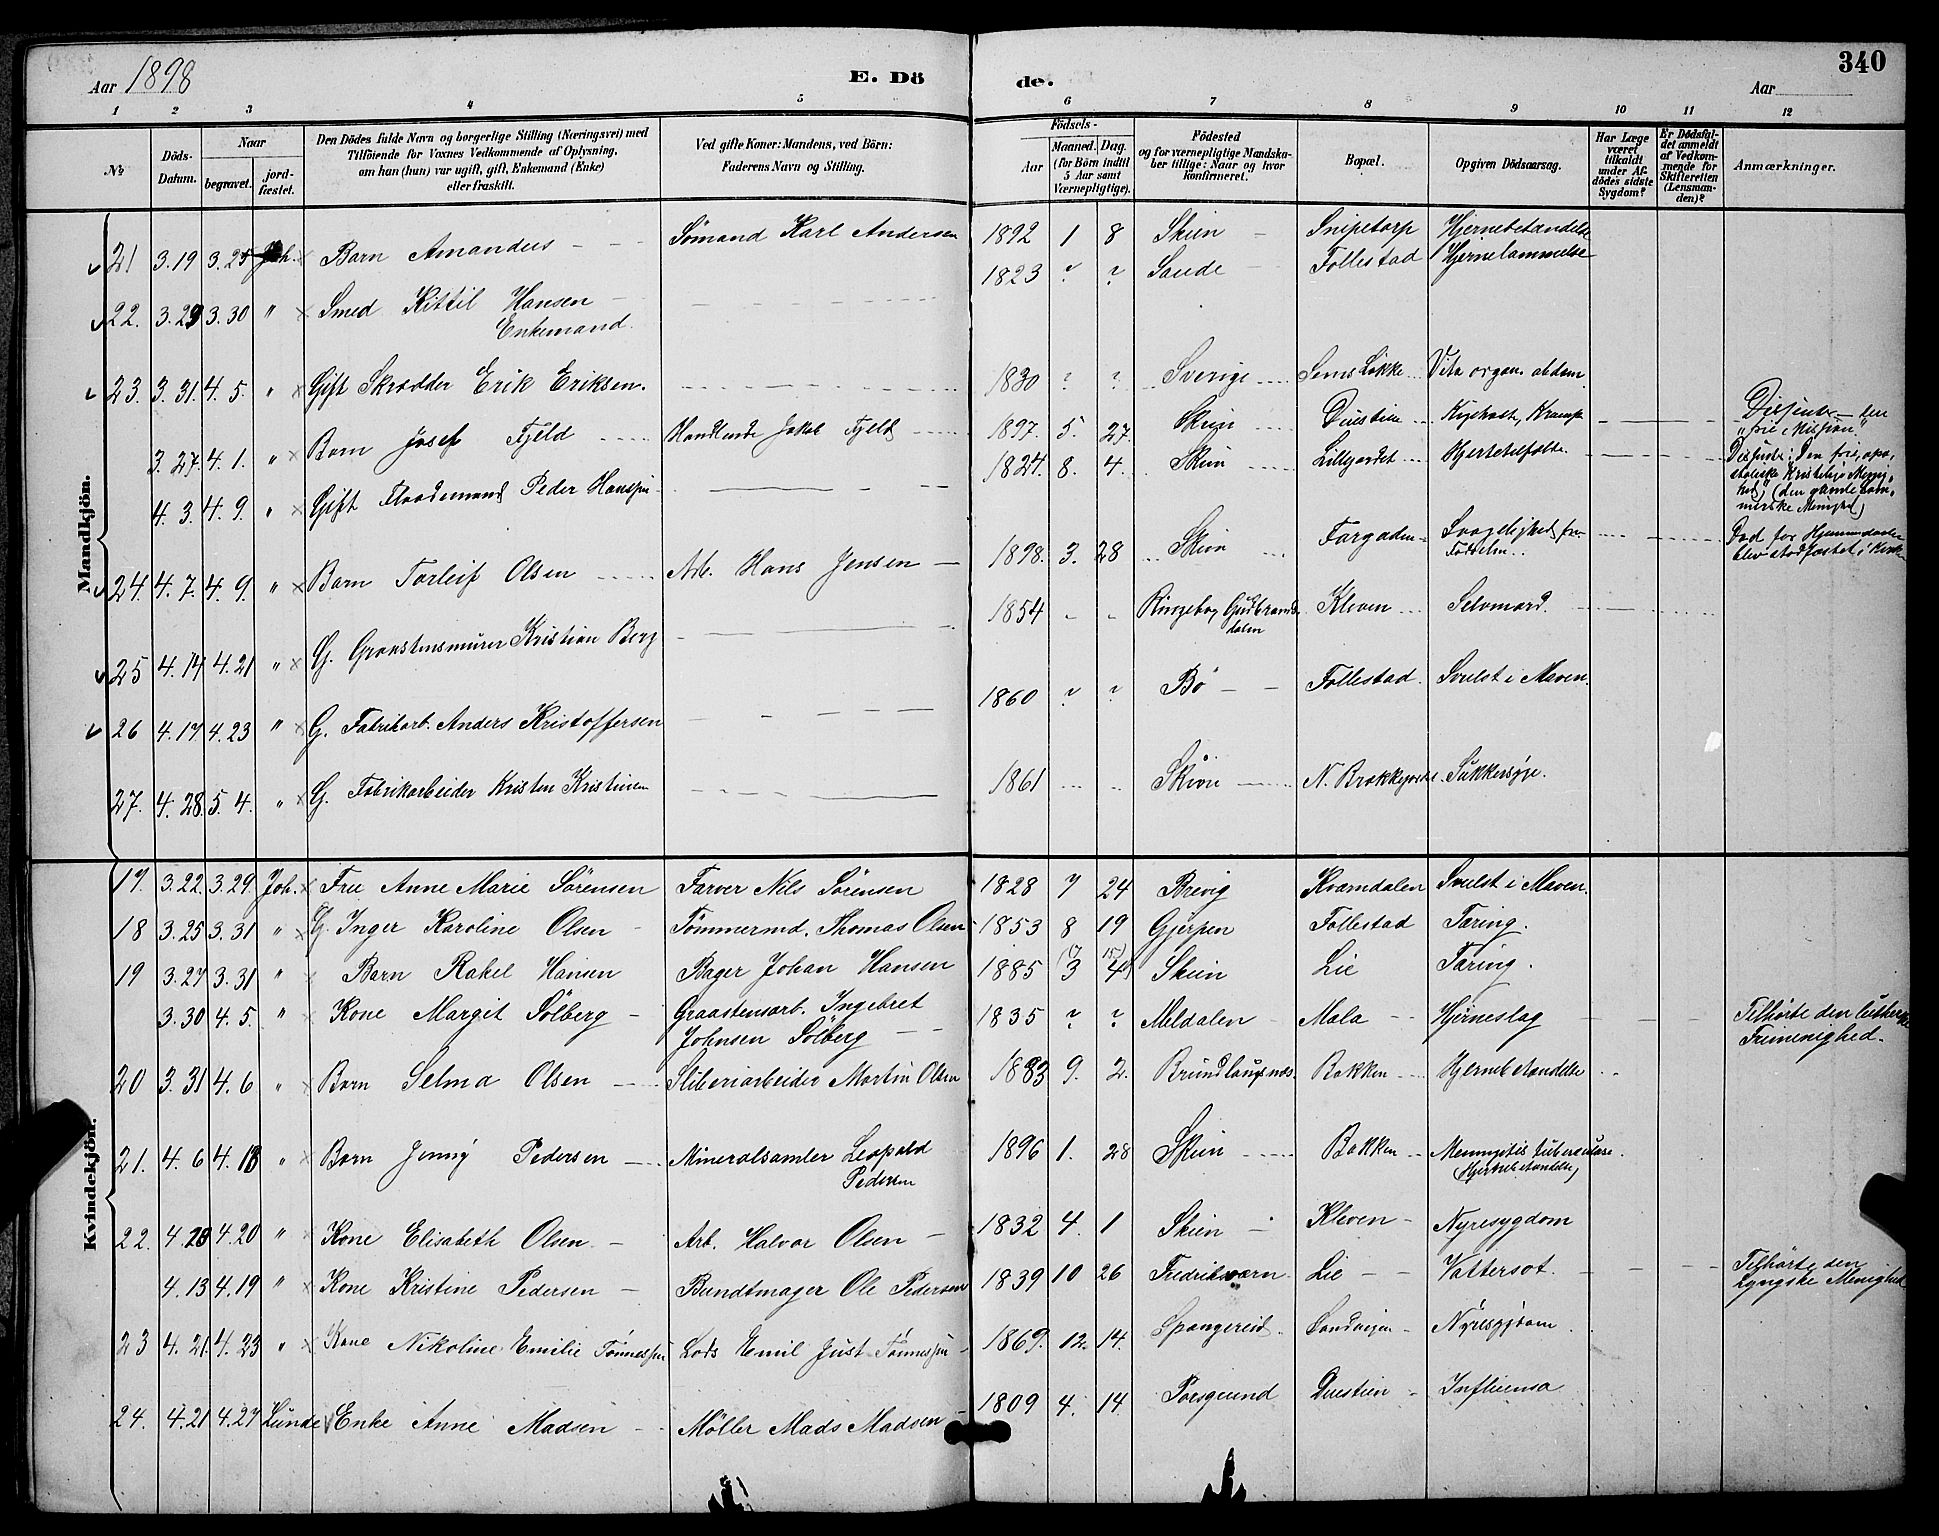 340
Aar 1898
E. Dö
de.
Aar
1 2 3 4 5 6 7 8 9 10 11 12
No
Döds-Datum.
Naar
begravet.
jord-fæstet.
Den Dödes fulde Navn og borgerlige Stilling (Næringsvei) med
Tilföiende for Voxnes Vedkommende af Oplysning,
om han (hun) var ugift, gift, Enkemand (Enke)
eller fraskilt.
Ved gifte Koner: Mandens, ved Börn:
Faderens Navn og Stilling.
Födsels-
Aar
Maaned. Dag.
(for Börn indtil
5 Aar samt
Værnepligtige).
Födested
og for værnepligtige Mandska-
ber tillige: Naar og hvor
konfirmeret.
Bopæl.
Opgiven Dödsaarsag.
Har Læge
været
tilkaldt
under Af-
dödes sidste
Sygdom?
Er Dödsfal-
det anmeldt
af Vedkom-
mende for
Skifteretten
(Lensman-
den)?
Anmærkninger.
Mandkjön.
21 3.19 3.25 Joh. Barn Amandus Sømand Karl Andersen 1892 1 8 Skien Snipetorp Hjernebetændelse
22. 3.29 3.30 " Smed Kittil Hansen 1823 ? ? Saude Follestad Hjernelammelse
Enkemand
23. 3.31 4.5. " Gift Skrædder Erik Eriksen. 1830 ? ? Sverige Løkke Vita organ. abdom.
3.27. 4.1. " Barn Josef Fjeld Handlende Jakob Fjeld 1897. 5. 27. Skien Duestien Kighoste, Krampe Dissenter den
"frie Mission."
4.3. 4.9. " Gift Flaademand Peder Hanssen 1824. 8. 4. Skien Lillejordet Hjertetilfælde. Dissenter: Den frie, apo-
stoliske Kristelige Menig-
hed, (den gamle Lam-
merske Menighed)
24. 4.7. 4.9. " Barn Torleif Olsen Arb. Hans Jensen 1898. 3. 28 Skien Fargaden Svagelighed fra
Fødselen Død før Hjemmedaaben
blev stadfæstet i Kirken
25 4.14 4.21 " G. Graastensmurer Kristian Berg 1854 " " Ringebo, Gudbrands-
dalen Kleven Selvmord.
26 4.17 4.23 " G. Fabrikarb. Anders Kristoffersen 1860 ? ? Bø Follestad. Svulst i Maven.
27. 4.28. 5.4. " G. Fabrikarbeider Kristen Kristensen 1861 Skien N. Brækkegade Sukkersyge.
Kvindekjön.
17. 3.22. 3.29. Joh. Frue Anne Marie Sørensen Farver Nils Sørensen 1828 7 24 Brevig Kvamdalen Svulst i Maven.
18 3.25 3.31 " G. Inger Karoline Olsen Tømmermd. Thomas Olsen 1853 8 19 Gjerpen Follestad Tæring.
19 3.27 3.31 " Barn Rakel Hansen Bager Johan Hansen 1885 3 4 Skien Lie Tæring.
3.30 4.5. " Kone Margit Sølberg Graastensarb. Ingebret
Johnsen Sølberg 1835 ? ? Meldalen Mæla Hjerneslag Tilhørte den lutherske
Frimenighed.
20 3.31 4.6 " Barn Selma Olsen Sliberiarbeider Martin Olsen 1883 9. 2. Brunlaugnæs. Bakken Hjernebetændelse
21. 4.6 4.13 " Barn Jenny Pedersen Mineralsamler Leopold
Pedersen 1896 1. 28 Skien Bakken Meningitis tuberculose.
(Hjernebetændelse)
22. 4.20 " Kone Elisabeth Olsen Arb. Halvor Olsen 1832 4. 1 Skien Kleven Nyresygdom
4.13 4.19 " Kone Kristine Pedersen Bundtmager Ole Pedersen 1839 10 26 Fredriksværn Lie Vattersot. Tilhørte den
Lyngske Menighed
23 4.21. 4.23 " Kone Nikoline Emilie Tønnessen Lods Emil Just Tønnessen 1869. 12. 14. Spangereid. Landvigen Nyresygdom
24. 4.21 4.27 Lunde Enke Anne Madsen Møller Mads Madsen 1809 4. 14. Porsgrund Duestien Influensa